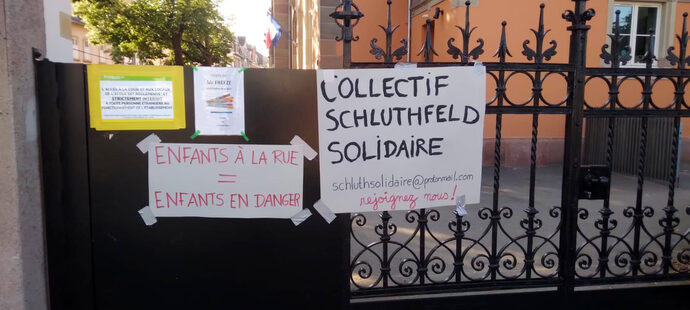 L'ACCÈS À LA COUR ET AUX LOCAUX
DE L'ÉCOLE EST RÉGLEMENTÉ ET
STRICTEMENT INTERDIT
À TOUTE PERSONNE ÉTRANGÈRE AU
FONCTIONNEMENT DE L'ÉTABLISSEMENT
ENFANTS À LA RUE
=
ENFANTS EN DANGER
COLLECTIF
SCHLUTHFELD
SOLIDAIRE
schluthsolidaire@protonmail.com
rejoignez nous!